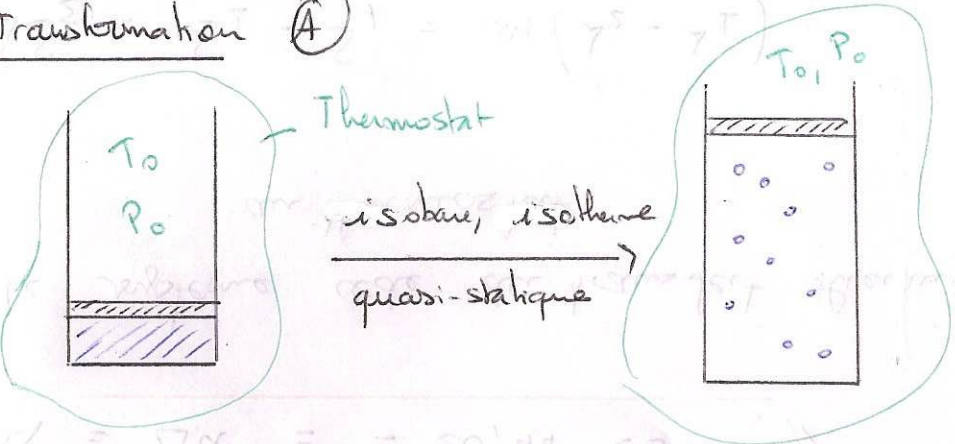 Transformation Ⓐ
Thermostat
T₀
P₀
isobare, isotherme
quasi-statique
T₀, P₀